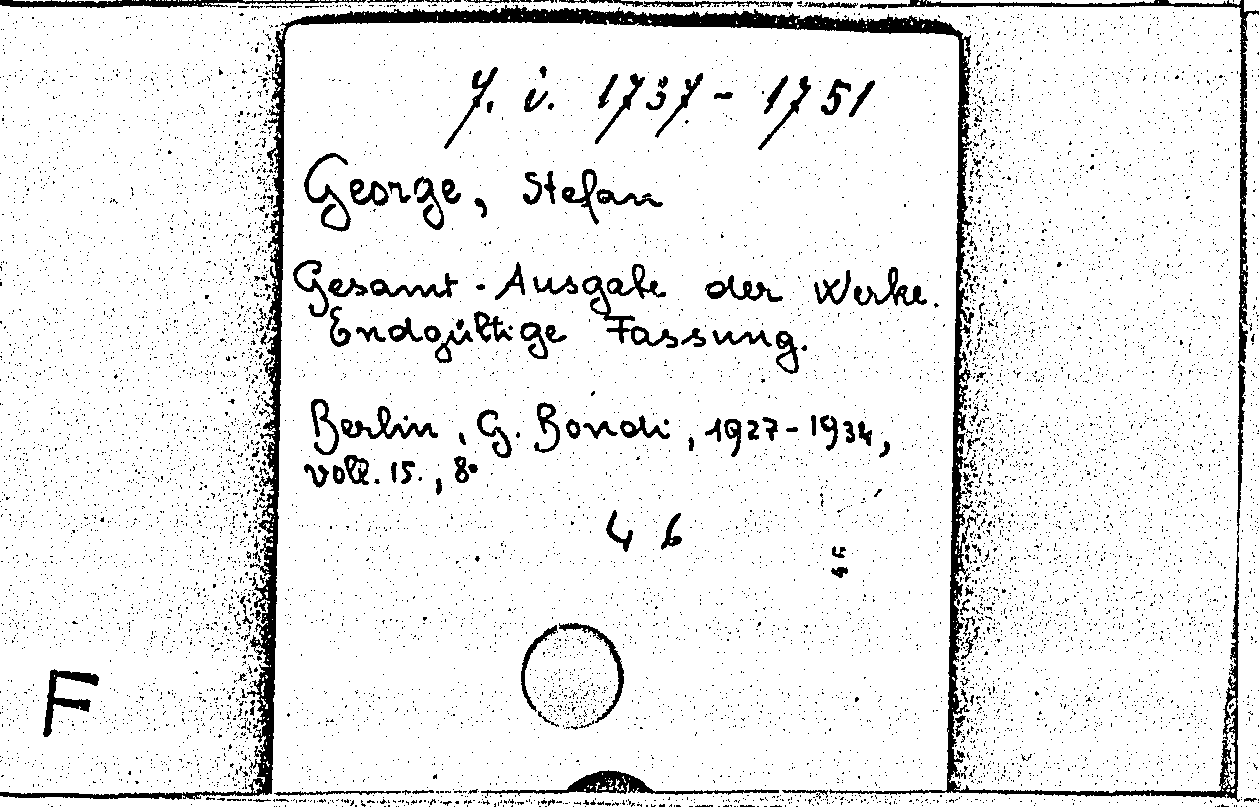 y. i. 1737 - 1751
George, Stefan
Gesamt - Ausgabe der Werke.
Endgültige Fassung.
Berlin, G. Bondi, 1927-1934,
voll. 15., 8°
4 6
F